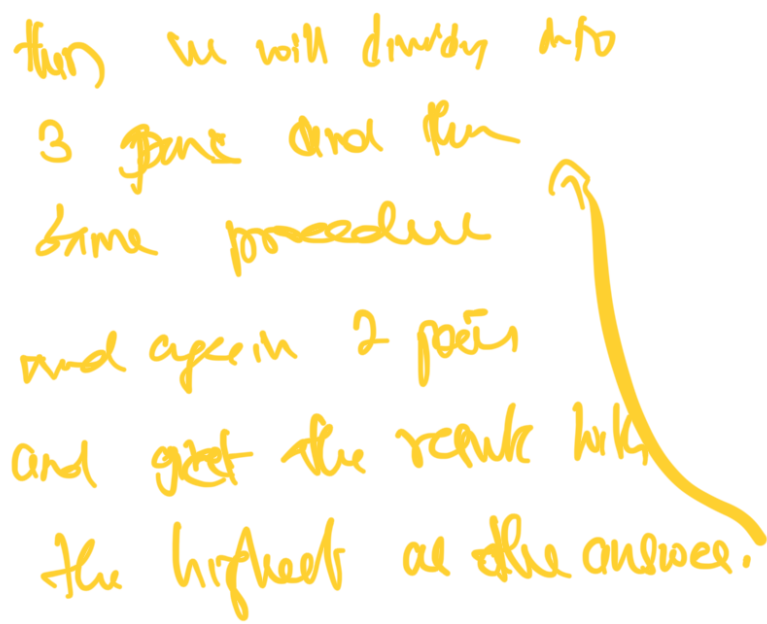 then we will dividy into
3 pans and then
same procedure
and again 2 pairs
and get the result with
the highest as the answer.